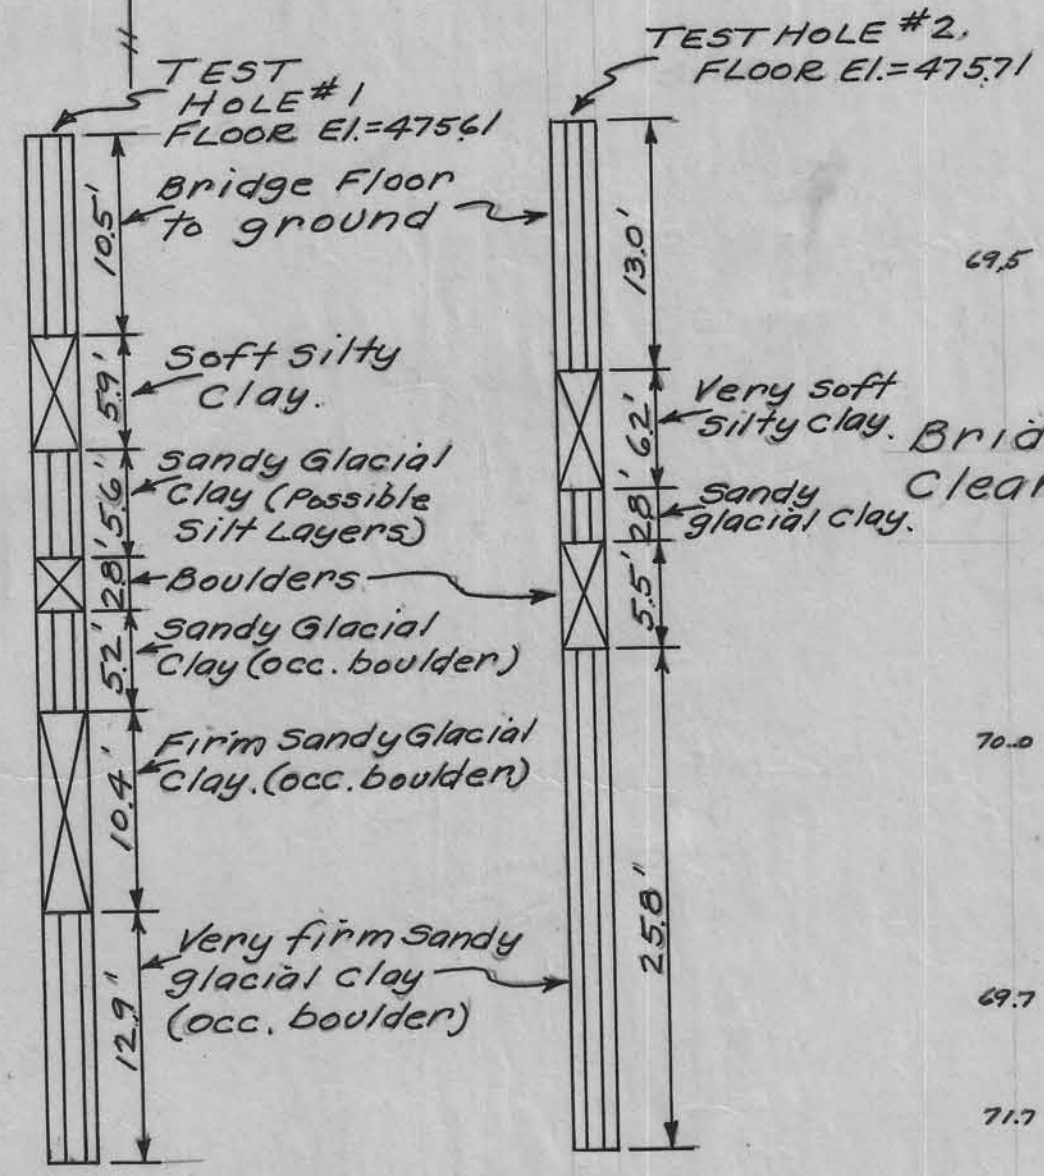 TEST
HOLE #1
FLOOR El.=475.61
10.5'
Bridge Floor
to ground
5.9'
Soft Silty
Clay.
5.6'
Sandy Glacial
Clay (Possible
Silt Layers)
2.8'
Boulders
5.2'
Sandy Glacial
Clay (occ. boulder)
10.4'
Firm Sandy Glacial
Clay. (occ. boulder)
12.9'
Very firm Sandy
glacial Clay
(occ. boulder)
TEST HOLE #2.
FLOOR El.=475.71
13.0'
6.2'
Very soft
silty clay.
2.8'
Sandy
glacial clay.
5.5'
25.8'
Brid
Clear
69.5
70.0
69.7
71.7